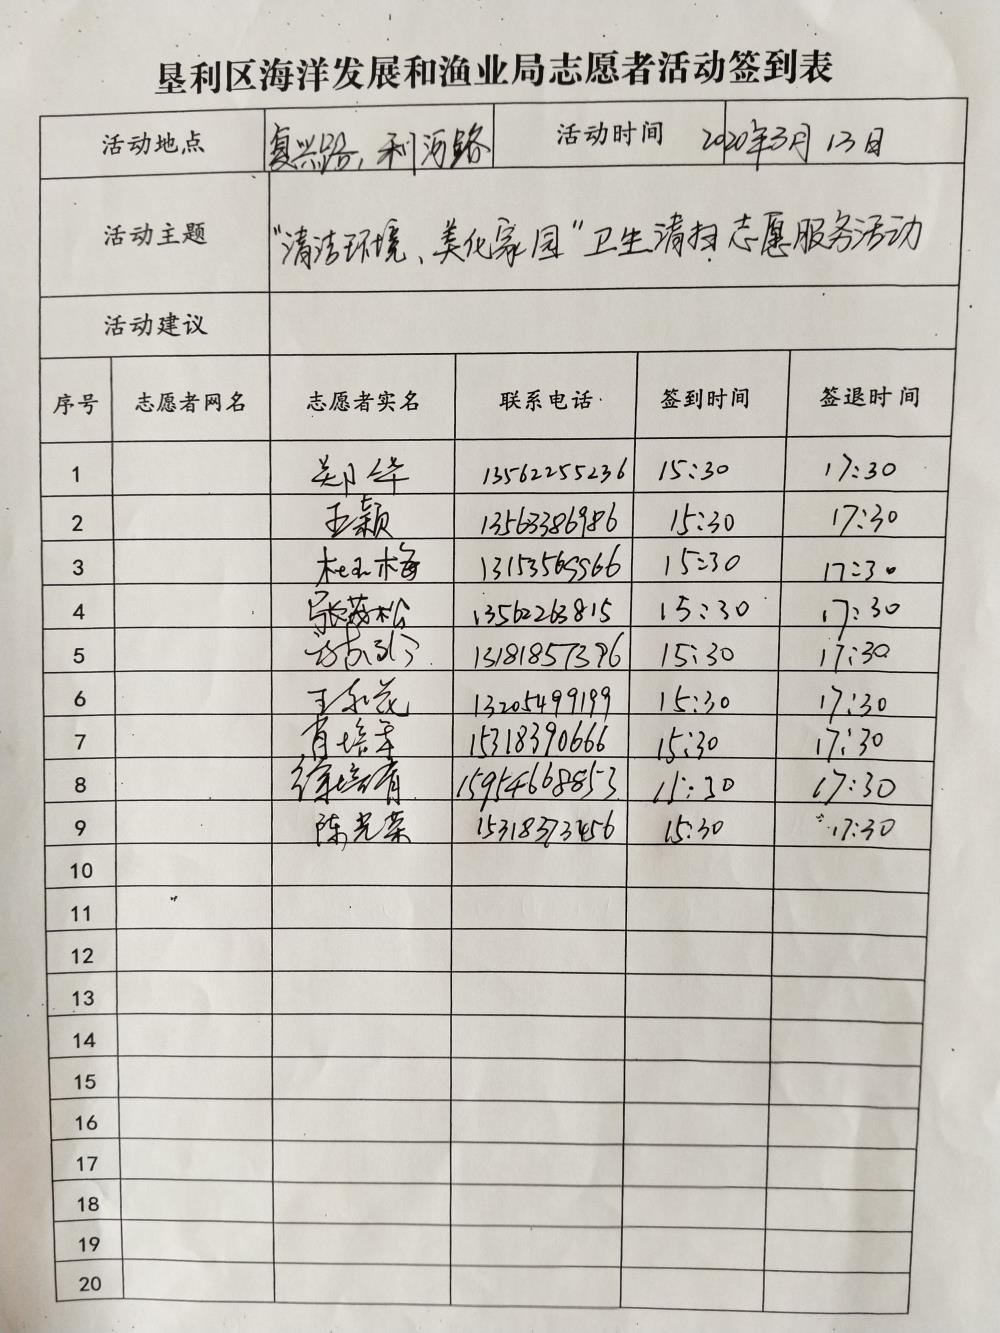 垦利区海洋发展和渔业局志愿者活动签到表
活动地点 复兴路、利河路 活动时间 2020年3月13日
活动主题 “清洁环境、美化家园”卫生清扫志愿服务活动
活动建议
序号 志愿者网名 志愿者实名 联系电话 签到时间 签退时间
1 郑华 13562255236 15:30 17:30
2 王颖 13563386986 15:30 17:30
3 杜玉梅 13153569966 15:30 17:30
4 张茂松 13562263815 15:30 17:30
5 13181857396 15:30 17:30
6 王永花 13205499199 15:30 17:30
7 肖培幸 15318390666 15:30 17:30
8 徐培育 15954668853 15:30 17:30
9 陈光荣 15318373456 15:30 17:30
10
11
12
13
14
15
16
17
18
19
20